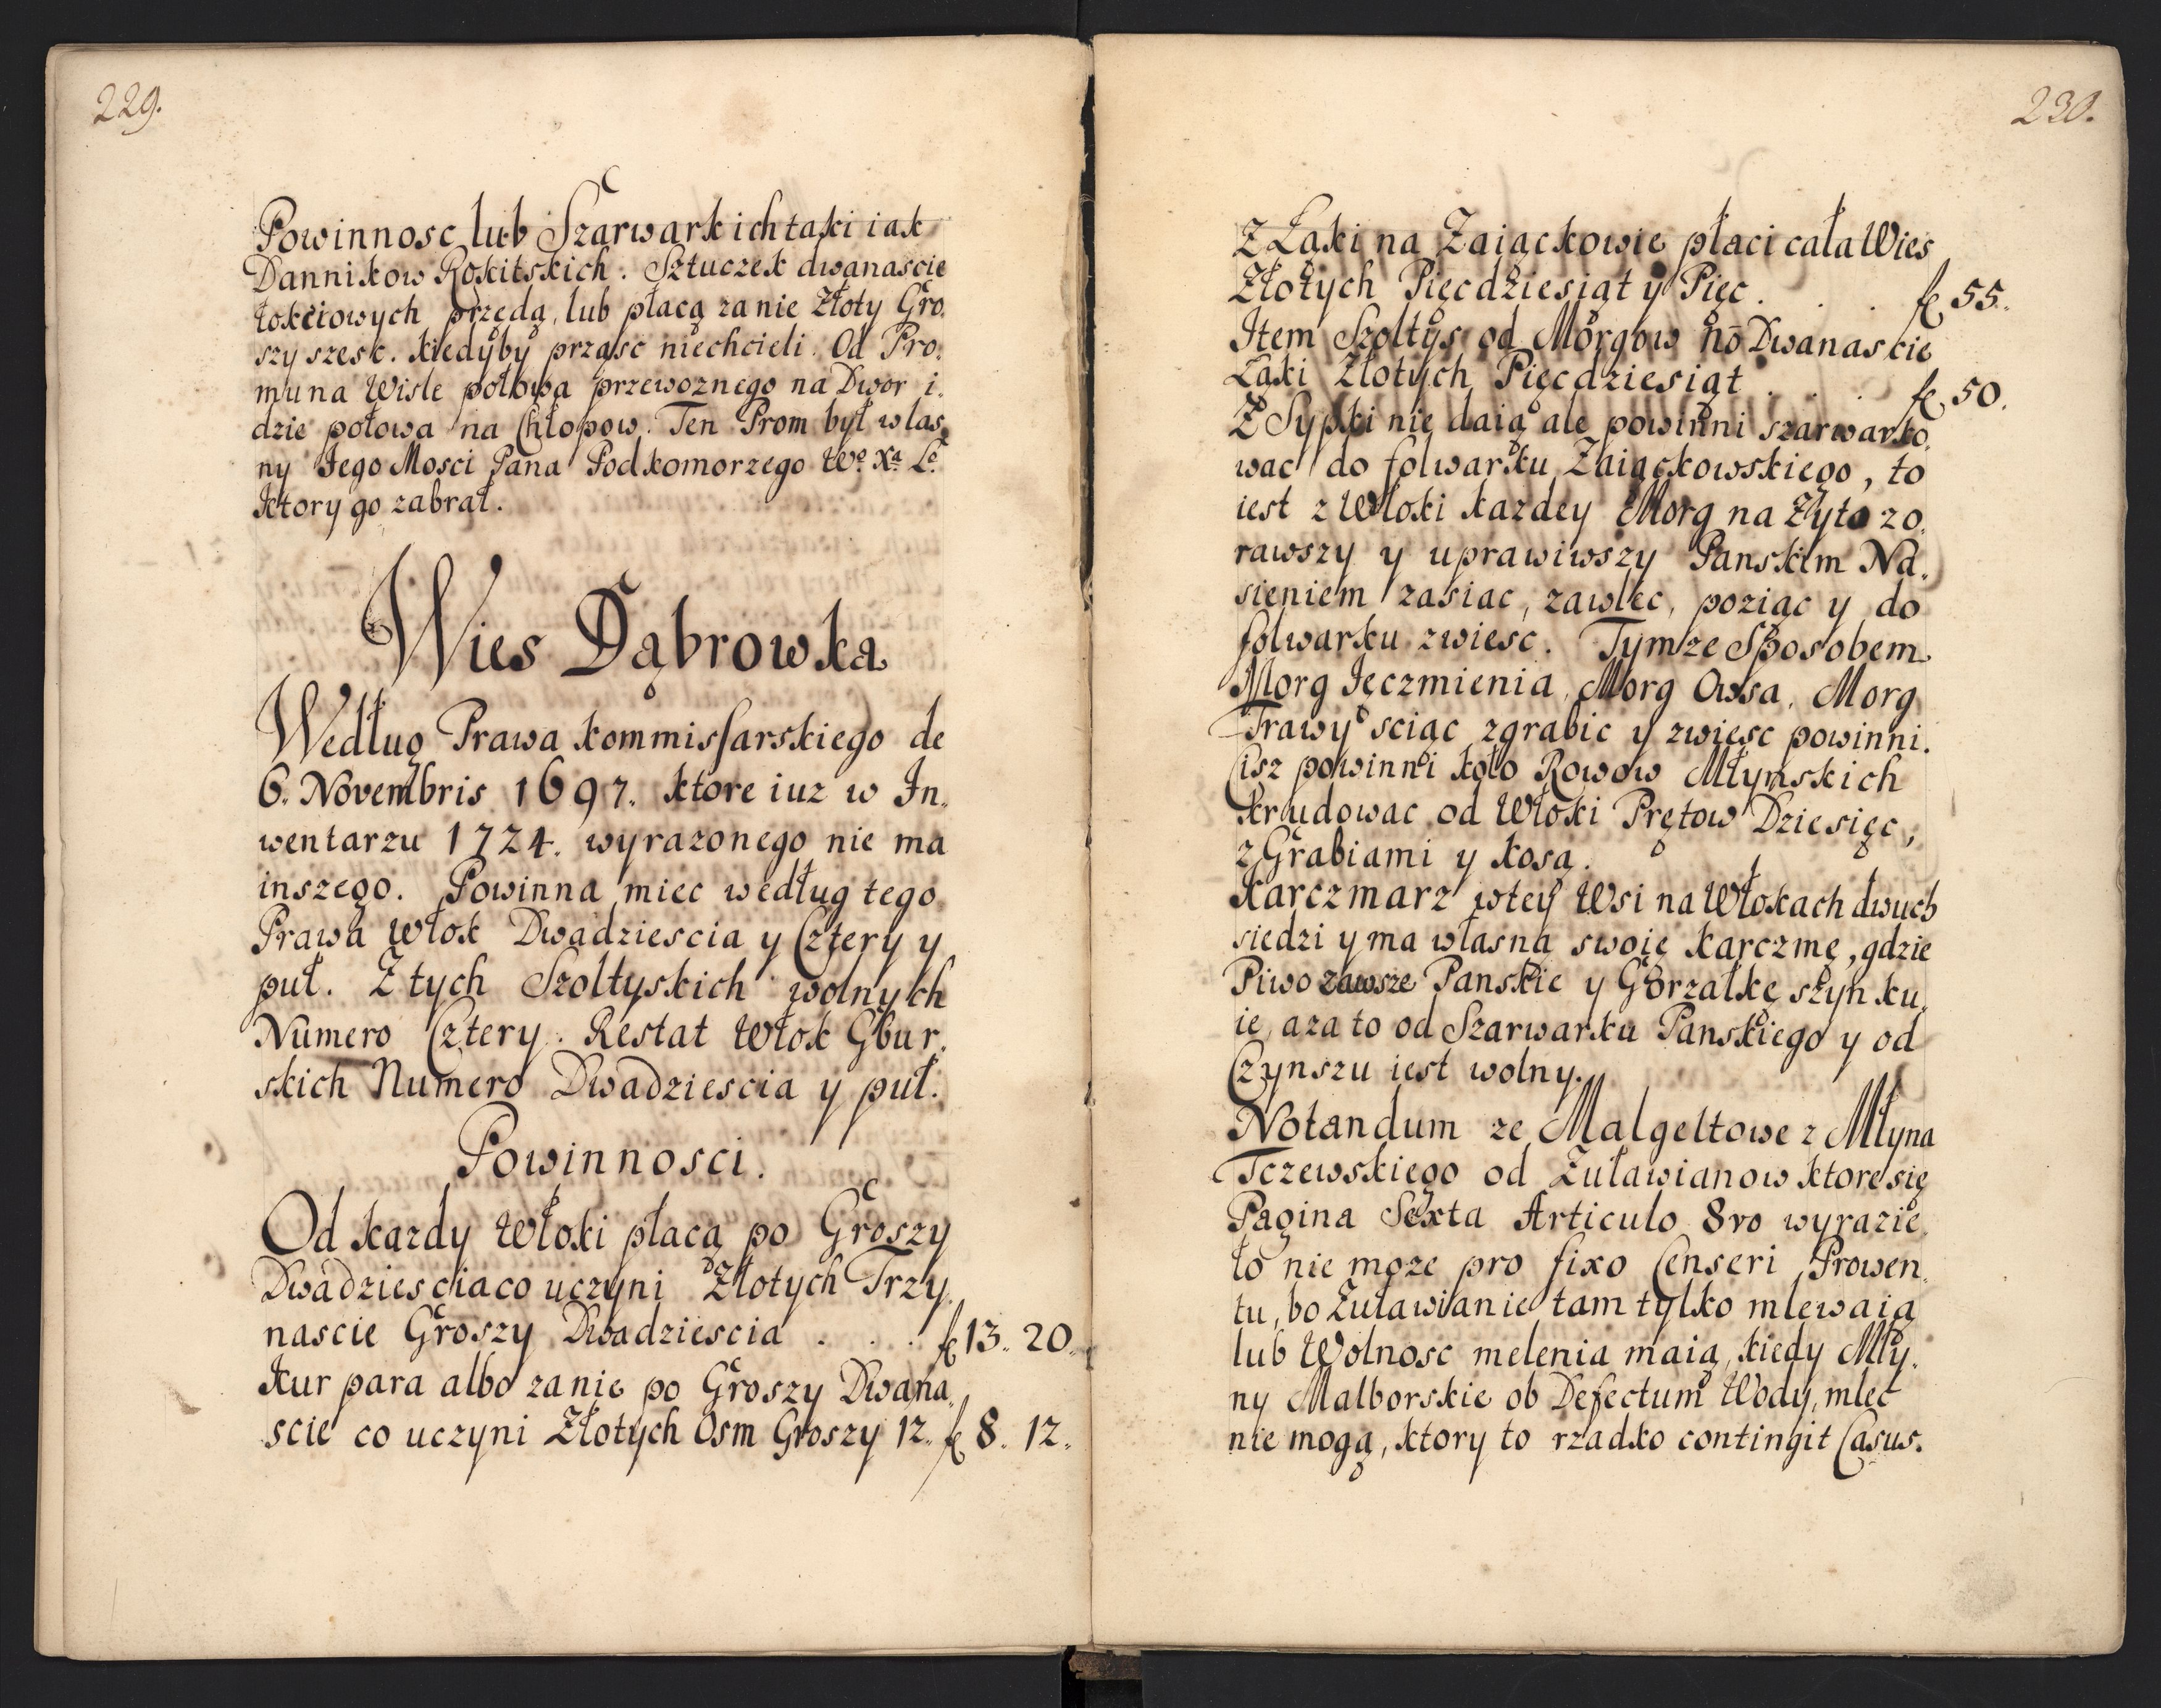 229.
Powinnosc lub Szarwark ich taki iak
Dannikow Rokitskich. Sztuczek dwanascie
łokciowych przędą, lub płacą za nie Złoty Gro,
szy szesc. kiedyby prząsc niechcieli. Od Pro,
mu na Wisle połowa przewoznego na Dwor i,
dzie połowa na Chłopow. Ten Prom był włas,
ny Jego Mosci Pana Podkomorzego Wº Xª Lº
ktory go zabrał.
Wies Dąbrowka
Według Prawa kommissarskiego de
6. Novembris 1697. ktore iuz w In,
wentarzu 1724. wyrazonego nie ma
inszego. Powinna miec według tego
Prawa Włok Dwadziescia y Cztery y
puł. Z tych Szołtyskich wolnych
Numero Cztery. Restat Włok Gbur,
skich Numero Dwadziescia y puł.
Powinnosci.
Od kazdy Włoki płacą po Groszy
Dwadziescia co uczyni Złotych Trzy,
nascie Groszy Dwadziescia . . . f 13. 20.
Kur para albo za nie po Groszy Dwana,
scie co uczyni Złotych Osm Groszy 12. f 8. 12.
230.
Z Łąki na Zaiączkowie płaci cała Wies
Złotych Pięcdziesiąt y Pięc . . . f 55.
Item Szołtys od Morgow nō Dwanascie
Łąki Złotych Pięcdziesiąt . . . f 50.
Z Sypki nie daią ale powinni szarwarko,
wac do folwarku Zaiąckowskiego, to
iest z Włoki kazdey Morg na Zyto zo,
rawszy y uprawiwszy Panskim Na,
sieniem zasiac, zawlec, poziąc y do
folwarku zwiesc. Tymze Sposobem
Morg Jęczmienia, Morg Owsa, Morg
Trawy sciąc zgrabic y zwiesc powinni.
Cisz powinni koło Rowow Młynskich
krudowac od Włoki Prętow Dziesięc,
z Grabiami y kosą.
Karczmarz w tey Wsi na Włokach dwuch
siedzi y ma własną swoię karczmę, gdzie
Piwo zawsze Panskie y Gorzałkę szynku,
ie, a za to od Szarwarku Panskiego y od
Czynszu iest wolny.
Notandum ze Malgeltowe z Młyna
Tczewskiego od Zuławianow ktore się
Pagina Sexta Articulo 8vo wyrazie,
ło nie moze pro fixo Censeri Prowen,
tu, bo Zuławianie tam tylko mlewaią
lub Wolnosc melenia maią, kiedy Mły,
ny Malborskie ob Defectum Wody, mlec
nie mogą, ktory to rzadko contingit Casus.